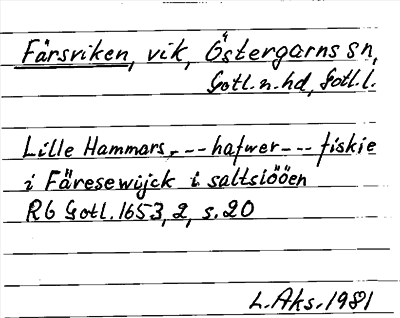 Färsviken, vik, Östergarns sn,
Gotl. n. hd, Gotl. l.
Lille Hammars, --- hafwer --- fiskie
i Färesewijck i saltsiööen
RG Gotl. 1653, 2, s. 20
L. Aks. 1981